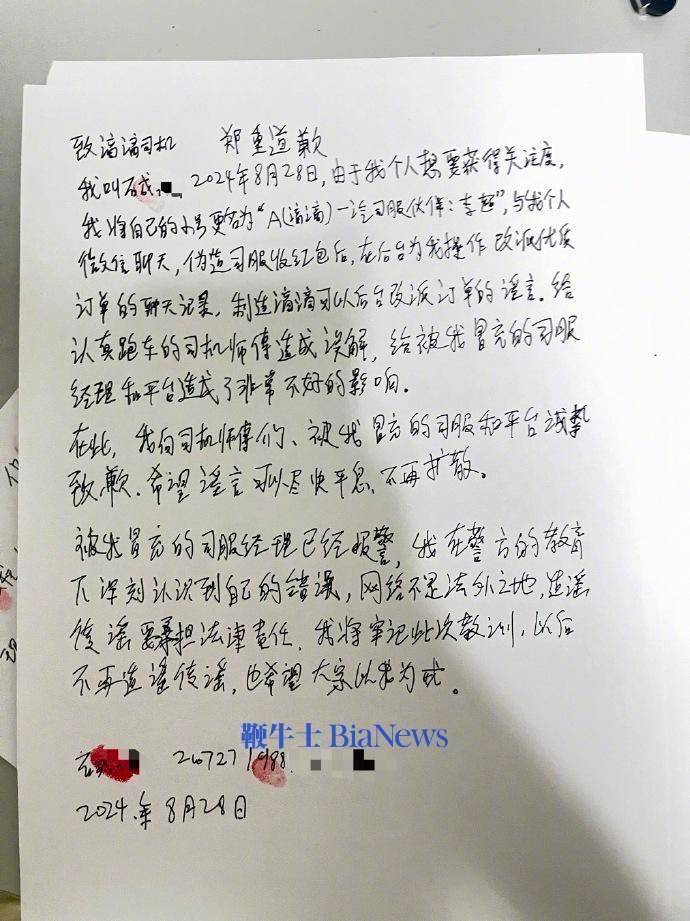 致滴滴司机 郑重道歉
我叫石成 2024年8月28日,由于我个人想要获得关注度,
我将自己的小号更名为“A(滴滴)一汽司服伙伴:李超”,与我个人
微信聊天,伪造司服收红包后,在后台为我操作改派优质
订单的聊天记录,制造滴滴可以后台改派订单的谣言。给
认真跑车的司机师傅造成误解,给被我冒充的司服
经理和平台造成了非常不好的影响。
在此,我向司机师傅们、被我冒充的司服和平台诚挚
致歉。希望谣言可以尽快平息、不再扩散。
被我冒充的司服经理已经报警,我在警方的教育
下深刻认识到自己的错误,网络不是法外之地,造谣
传谣要承担法律责任。我将牢记此次教训,以后
不再造谣传谣,也希望大家以我为戒。
鞭牛士 BiaNews
2024年8月28日